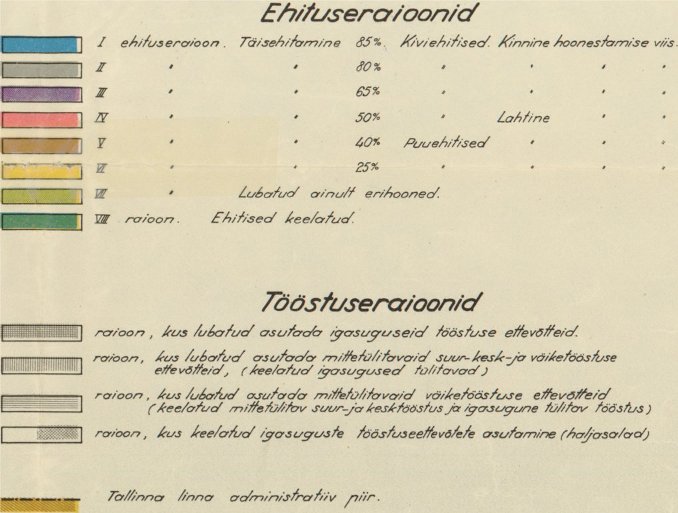 Ehituseraioonid
I ehituseraioon. Täisehitamine 85%. Kiviehitised. Kinnine hoonestamise viis.
II " " 80% " " " "
III " " 65% " " " "
IV " " 50% " Lahtine " "
V " " 40% Puuehitised " " "
VI " " 25% " " " "
VII " Lubatud ainult erihooned.
VIII raioon. Ehitised keelatud.
Tööstuseraioonid
raioon, kus lubatud asutada igasuguseid tööstuse ettevõtteid.
raioon, kus lubatud asutada mittetülitavaid suur-kesk-ja väiketööstuse
ettevõtteid, (keelatud igasugused tülitavad)
raioon, kus lubatud asutada mittetülitavaid väiketööstuse ettevõtteid
(keelatud mittetülitav suur-ja kesktööstus ja igasugune tülitav tööstus)
raioon, kus keelatud igasuguste tööstuseettevõtete asutamine (haljasalad)
Tallinna linna administratiiv piir.